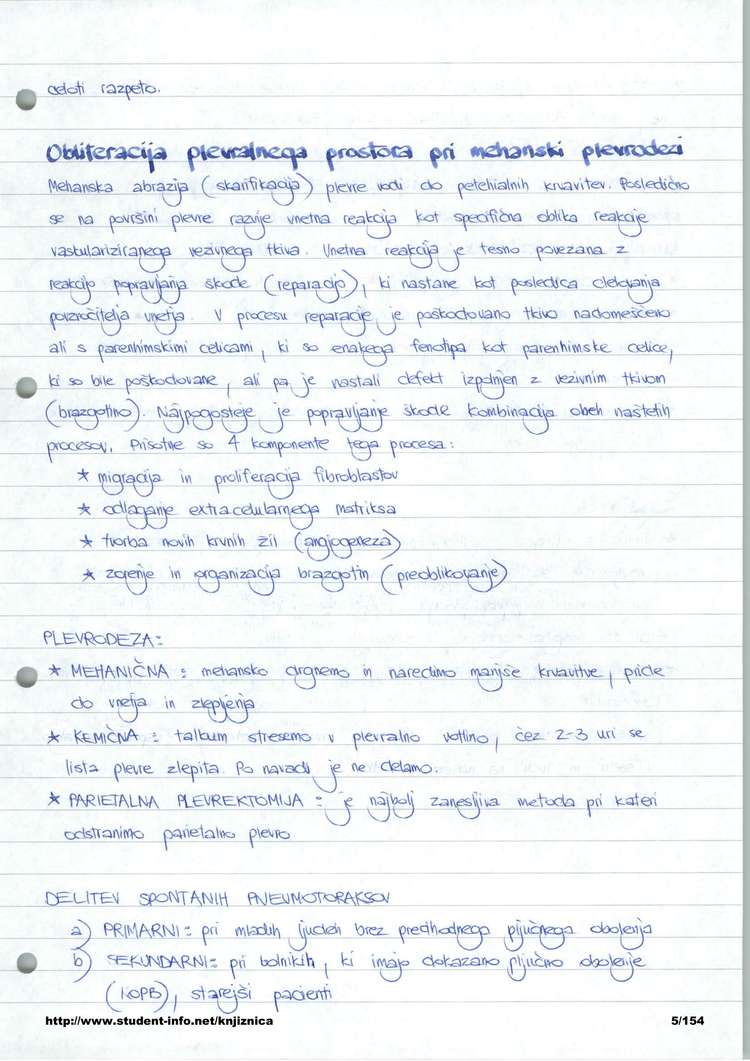 celoti razpeto.
Obliteracija plevralnega prostora pri mehanski plevrodezi
Mehanska abrazija (skarifikacija) plevre vodi do petehialnih krvavitev. Posledično
se na površini plevre razvije vnetna reakcija kot specifična oblika reakcije
vaskulariziranega vezivnega tkiva. Vnetna reakcija je tesno povezana z
reakcijo popravljanja škode (reparacijo), ki nastane kot posledica delovanja
povzročitelja vnetja. V procesu reparacije je poškodovano tkivo nadomeščeno
ali s parenhimskimi celicami, ki so enakega fenotipa kot parenhimske celice,
ki so bile poškodovane, ali pa je nastali defekt izpolnjen z vezivnim tkivom
(brazgotino). Najpogosteje je popravljanje škode kombinacija obeh naštetih
procesov. Prisotne so 4 komponente tega procesa:
* migracija in proliferacija fibroblastov
* odlaganje extracelularnega matriksa
* tvorba novih krvnih žil (angiogeneza)
* zorenje in organizacija brazgotin (preoblikovanje)
PLEVRODEZA:
* MEHANIČNA: mehansko drgnemo in naredimo manjše krvavitve, pride
do vnetja in zlepljenja
* KEMIČNA: talkum stresemo v plevralno votlino, čez 2-3 uri se
lista plevre zlepita. Po navadi je ne delamo.
* PARIETALNA PLEVREKTOMIJA: je najbolj zanesljiva metoda pri kateri
odstranimo parietalno plevro
DELITEV SPONTANIH PNEVMOTORAKSOV
a) PRIMARNI: pri mladih ljudeh brez predhodnega pljučnega obolenja
b) SEKUNDARNI: pri bolnikih, ki imajo dokazano pljučno obolenje
(KOPB), starejši pacienti
http://www.student-info.net/knjiznica 5/154